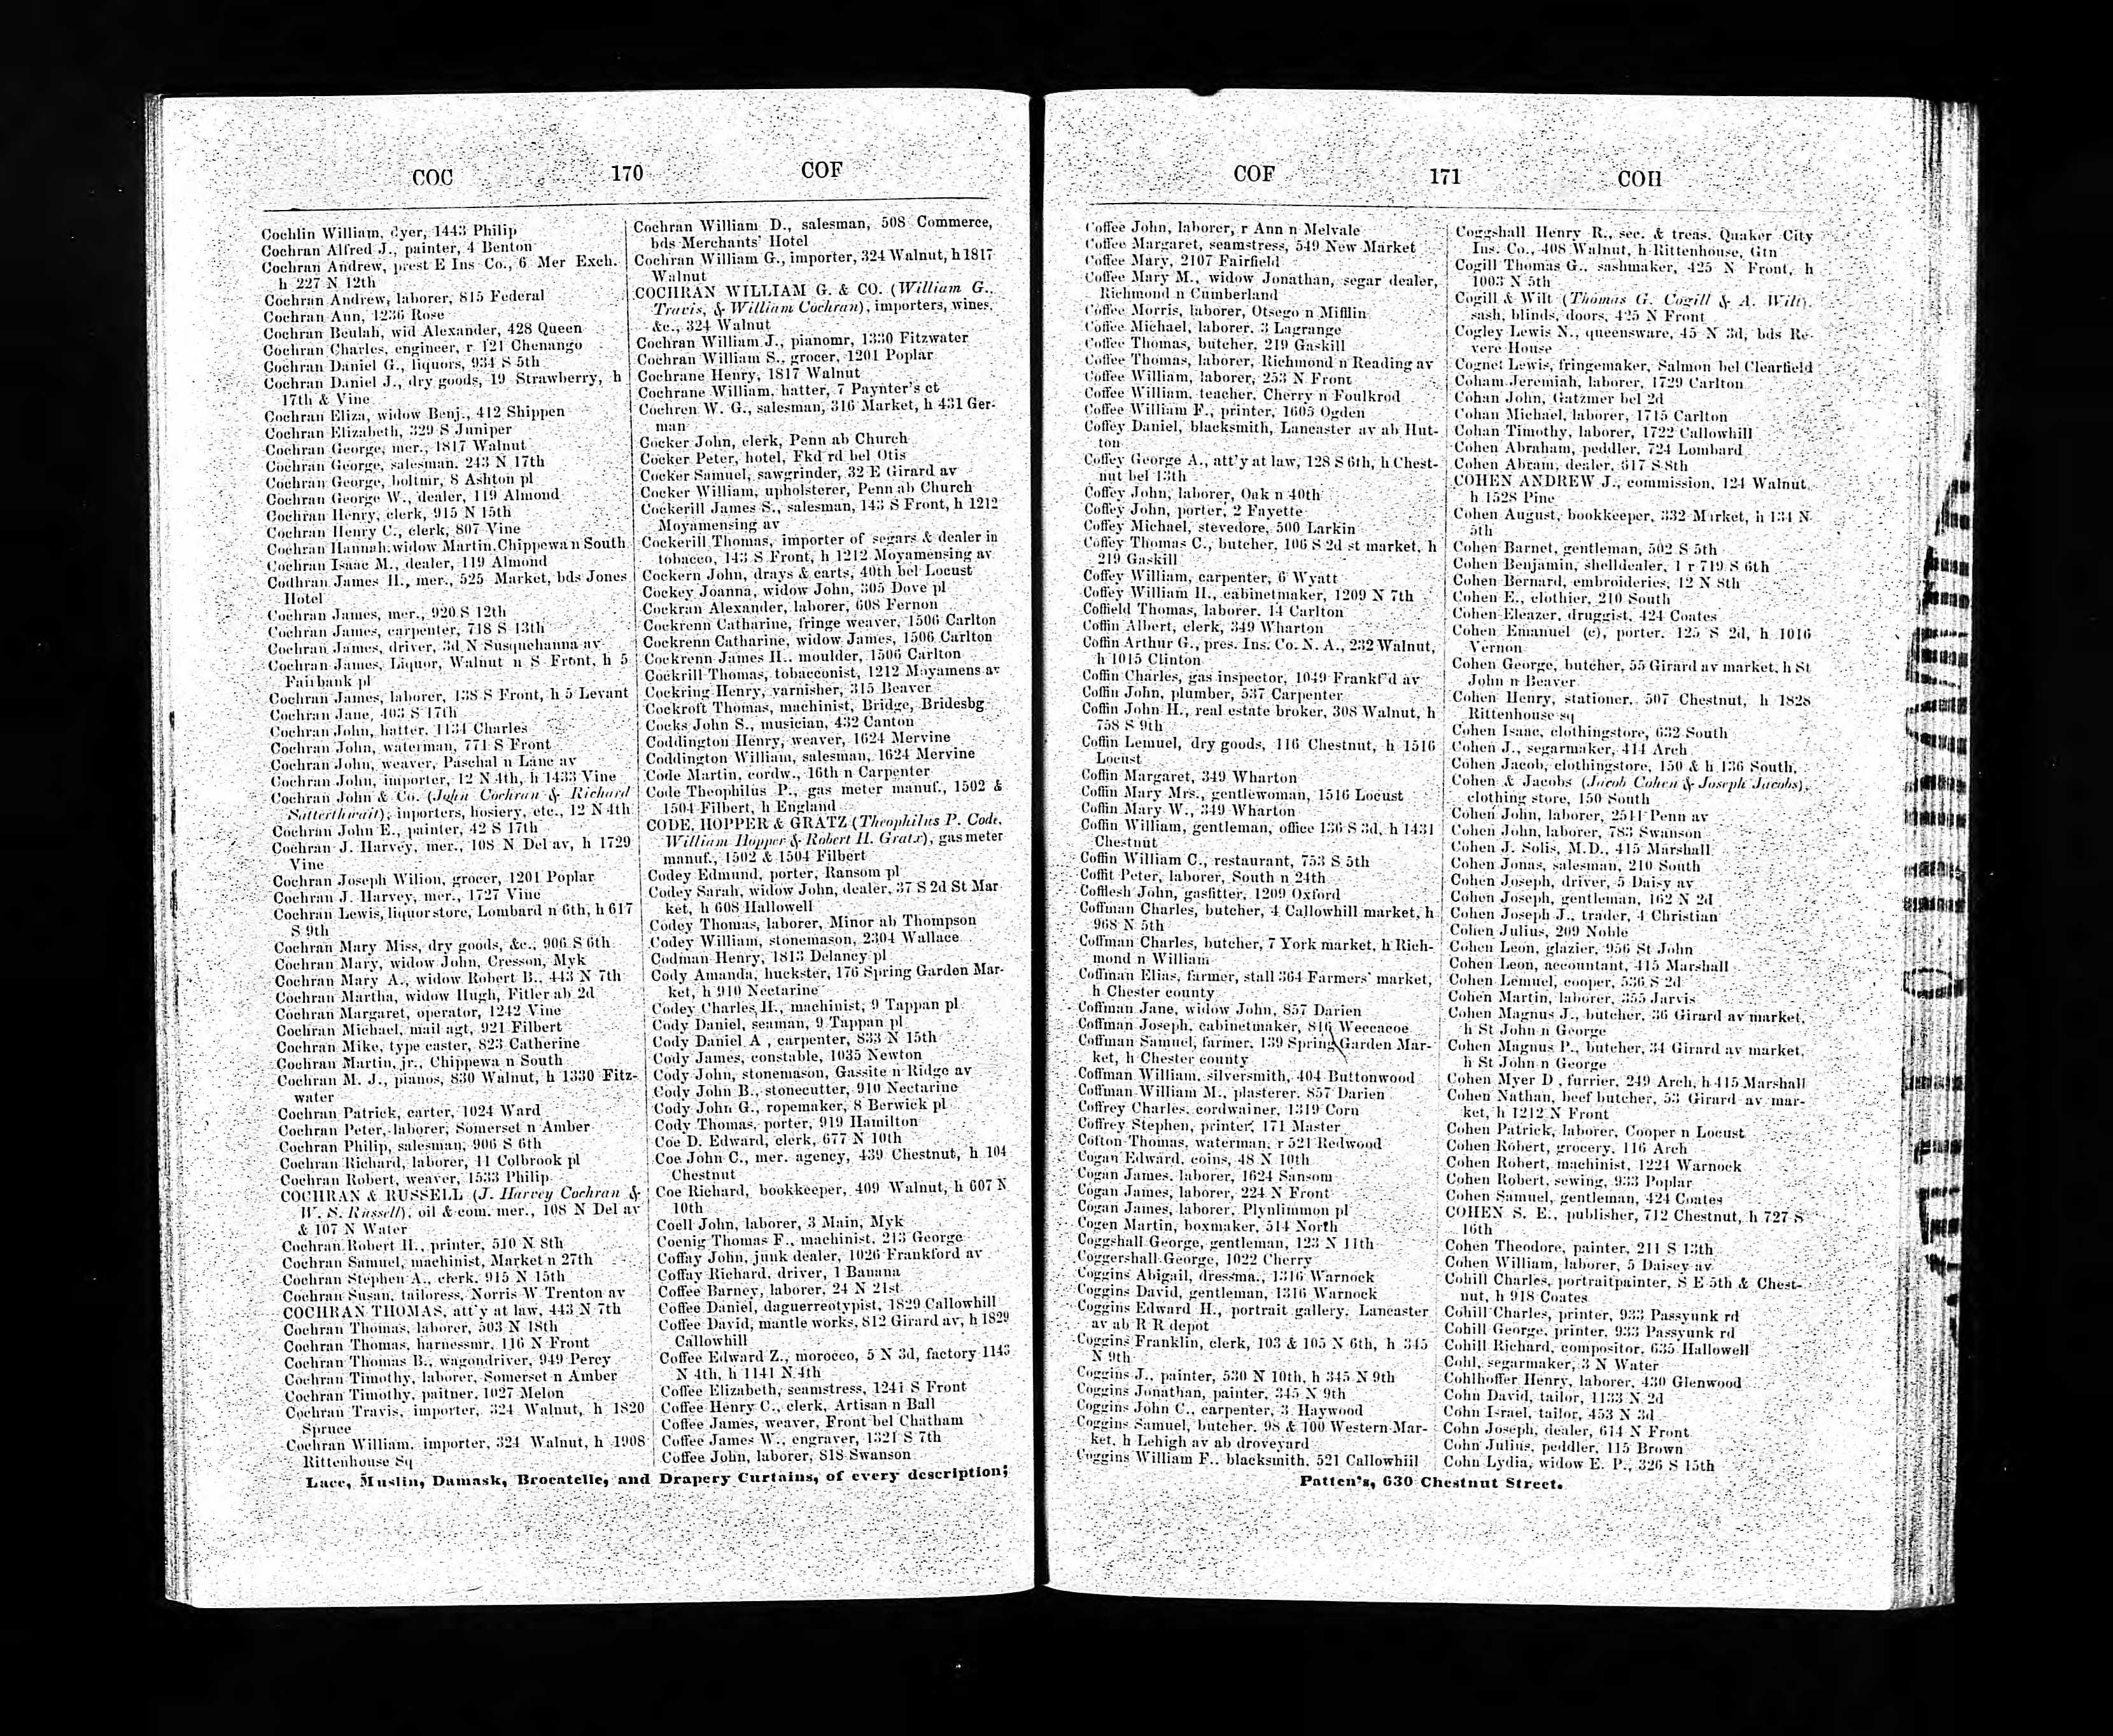 COC 170 COF
Cochlin William, dyer, 1443 Philip
Cochran Alfred J., painter, 4 Benton
Cochran Andrew, prest E Ins Co., 6 Mer Exch.
h 227 N 12th
Cochran Andrew, laborer, 815 Federal
Cochran Ann, 1236 Rose
Cochran Beulah, wid Alexander, 428 Queen
Cochran Charles, engineer, r 121 Chenango
Cochran Daniel G., liquors, 934 S 5th
Cochran Daniel J., dry goods, 19 Strawberry, h
17th & Vine
Cochran Eliza, widow Benj., 412 Shippen
Cochran Elizabeth, 329 S Juniper
Cochran George, mer., 1817 Walnut
Cochran George, salesman, 243 N 17th
Cochran George, boltmr, 8 Ashton pl
Cochran George W., dealer, 119 Almond
Cochran Henry, clerk, 915 N 15th
Cochran Henry C., clerk, 807 Vine
Cochran Hannah, widow Martin, Chippewa n South
Cochran Isaac M., dealer, 119 Almond
Codhran James H., mer., 525 Market, bds Jones
Hotel
Cochran James, mer., 920 S 12th
Cochran James, carpenter, 718 S 13th
Cochran James, driver, 3d N Susquehanna av
Cochran James, Liquor, Walnut n S Front, h 5
Fairbank pl
Cochran James, laborer, 138 S Front, h 5 Levant
Cochran Jane, 403 S 17th
Cochran John, hatter, 1134 Charles
Cochran John, waterman, 771 S Front
Cochran John, weaver, Paschal n Lane av
Cochran John, importer, 12 N 4th, h 1433 Vine
Cochran John & Co. (John Cochran & Richard
Satterthwait), inporters, hosiery, etc., 12 N 4th
Cochran John E., painter, 42 S 17th
Cochran J. Harvey, mer., 108 N Del av, h 1729
Vine
Cochran Joseph Wilion, grocer, 1201 Poplar
Cochran J. Harvey, mer., 1727 Vine
Cochran Lewis, liquor store, Lombard n 6th, h 617
S 9th
Cochran Mary Miss, dry goods, &c., 906 S 6th
Cochran Mary, widow John, Cresson, Myk
Cochran Mary A., widow Robert B., 443 N 7th
Cochran Martha, widow Hugh, Fitler ab 2d
Cochran Margaret, operator, 1242 Vine
Cochran Michael, mail agt, 921 Filbert
Cochran Mike, type caster, 823 Catherine
Cochran Martin, jr., Chippewa n South
Cochran M. J., pianos, 830 Walnut, h 1330 Fitz-
water
Cochran Patrick, carter, 1024 Ward
Cochran Peter, laborer, Somerset n Amber
Cochran Philip, salesman, 906 S 6th
Cochran Richard, laborer, 11 Colbrook pl
Cochran Robert, weaver, 1533 Philip
COCHRAN & RUSSELL (J. Harvey Cochran &
W. S. Russell), oil & com. mer., 108 N Del av
& 107 N Water
Cochran Robert H., printer, 510 N 8th
Cochran Samuel, machinist, Market n 27th
Cochran Stephen A., clerk, 915 N 15th
Cochran Susan, tailoress, Norris W Trenton av
COCHRAN THOMAS, att'y at law, 443 N 7th
Cochran Thomas, laborer, 503 N 18th
Cochran Thomas, harnessmr, 116 N Front
Cochran Thomas B., wagondriver, 949 Percy
Cochran Timothy, laborer, Somerset n Amber
Cochran Timothy, paitner, 1027 Melon
Cochran Travis, importer, 324 Walnut, h 1820
Spruce
Cochran William, importer, 324 Walnut, h 1908
Rittenhouse Sq
Cochran William D., salesman, 508 Commerce,
bds Merchants' Hotel
Cochran William G., importer, 324 Walnut, h 1817
Walnut
COCHRAN WILLIAM G. & CO. (William G.,
Travis, & William Cochran), importers, wines,
&c., 324 Walnut
Cochran William J., pianomr, 1330 Fitzwater
Cochran William S., grocer, 1201 Poplar
Cochrane Henry, 1817 Walnut
Cochrane William, hatter, 7 Paynter's ct
Cochren W. G., salesman, 316 Market, h 431 Ger-
man
Cocker John, clerk, Penn ab Church
Cocker Peter, hotel, Fkd rd bel Otis
Cocker Samuel, sawgrinder, 32 E Girard av
Cocker William, upholsterer, Penn ab Church
Cockerill James S., salesman, 143 S Front, h 1212
Moyamensing av
Cockerill Thomas, importer of segars & dealer in
tobacco, 143 S Front, h 1212 Moyamensing av
Cockern John, drays & carts, 40th bel Locust
Cockey Joanna, widow John, 305 Dove pl
Cockran Alexander, laborer, 608 Fernon
Cockrenn Catharine, fringe weaver, 1506 Carlton
Cockrenn Catharine, widow James, 1506 Carlton
Cockrenn James H., moulder, 1506 Carlton
Cockrill Thomas, tobacconist, 1212 Moyamens av
Cockring Henry, varnisher, 315 Beaver
Cockroft Thomas, machinist, Bridge, Bridesbg
Cocks John S., musician, 432 Canton
Coddington Henry, weaver, 1624 Mervine
Coddington William, salesman, 1624 Mervine
Code Martin, cordw., 16th n Carpenter
Code Theophilus P., gas meter manuf., 1502 &
1504 Filbert, h England
CODE, HOPPER & GRATZ (Theophilus P. Code,
William Hopper & Robert H. Gratz), gas meter
manuf., 1502 & 1504 Filbert
Codey Edmund, porter, Ransom pl
Codey Sarah, widow John, dealer, 37 S 2d St Mar
ket, h 608 Hallowell
Codey Thomas, laborer, Minor ab Thompson
Codey William, stonemason, 2304 Wallace
Codman Henry, 1813 Delancy pl
Cody Amanda, huckster, 176 Spring Garden Mar-
ket, h 910 Nectarine
Codey Charles H., machinist, 9 Tappan pl
Cody Daniel, seaman, 9 Tappan pl
Cody Daniel A , carpenter, 833 N 15th
Cody James, constable, 1035 Newton
Cody John, stonemason, Gassite n Ridge av
Cody John B., stonecutter, 910 Nectarine
Cody John G., ropemaker, 8 Berwick pl
Cody Thomas, porter, 919 Hamilton
Coe D. Edward, clerk, 677 N 10th
Coe John C., mer. agency, 439 Chestnut, h 104
Chestnut
Coe Richard, bookkeeper, 409 Walnut, h 607 N
10th
Coell John, laborer, 3 Main, Myk
Coenig Thomas F., machinist, 213 George
Coffay John, junk dealer, 1026 Frankford av
Coffay Richard, driver, 1 Banana
Coffee Barney, laborer, 24 N 21st
Coffee Daniel, daguerreotypist, 1829 Callowhill
Coffee David, mantle works, 812 Girard av, h 1829
Callowhill
Coffee Edward Z., morocco, 5 N 3d, factory 1143
N 4th, h 1141 N 4th
Coffee Elizabeth, seamstress, 1241 S Front
Coffee Henry C., clerk, Artisan n Ball
Coffee James, weaver, Front bel Chatham
Coffee James W., engraver, 1321 S 7th
Coffee John, laborer, 818 Swanson
Lace, Muslin, Damask, Brocatelle, and Drapery Curtains, of every description;
COF 171 COH
Coffee John, laborer, r Ann n Melvale
Coffee Margaret, seamstress, 549 New Market
Coffee Mary, 2107 Fairfield
Coffee Mary M., widow Jonathan, segar dealer,
Richmond n Cumberland
Coffee Morris, laborer, Otsego n Mifflin
Coffee Michael, laborer, 3 Lagrange
Coffee Thomas, butcher, 219 Gaskill
Coffee Thomas, laborer, Richmond n Reading av
Coffee William, laborer, 253 N Front
Coffee William, teacher, Cherry n Foulkrod
Coffee William F., printer, 1605 Ogden
Coffey Daniel, blacksmith, Lancaster av ab Hut-
ton
Coffey George A., att'y at law, 128 S 6th, h Chest-
nut bel 13th
Coffey John, laborer, Oak n 40th
Coffey John, porter, 2 Fayette
Coffey Michael, stevedore, 500 Larkin
Coffey Thomas C., butcher, 106 S 2d st market, h
219 Gaskill
Coffey William, carpenter, 6 Wyatt
Coffey William H., cabinetmaker, 1209 N 7th
Coffield Thomas, laborer, 14 Carlton
Coffin Albert, clerk, 349 Wharton
Coffin Arthur G., pres. Ins. Co. N. A., 232 Walnut,
h 1015 Clinton
Coffin Charles, gas inspector, 1049 Frankf'd av
Coffin John, plumber, 537 Carpenter
Coffin John H., real estate broker, 308 Walnut, h
758 S 9th
Coffin Lemuel, dry goods, 116 Chestnut, h 1516
Locust
Coffin Margaret, 349 Wharton
Coffin Mary Mrs., gentlewoman, 1516 Locust
Coffin Mary W., 349 Wharton
Coffin William, gentleman, office 136 S 3d, h 1431
Chestnut
Coffin William C., restaurant, 753 S 5th
Coffit Peter, laborer, South n 24th
Cofflesh John, gasfitter, 1209 Oxford
Coffman Charles, butcher, 4 Callowhill market, h
968 N 5th
Coffman Charles, butcher, 7 York market, h Rich-
mond n William
Coffman Elias, farmer, stall 364 Farmers' market,
h Chester county
Coffman Jane, widow John, 857 Darien
Coffman Joseph, cabinetmaker, 816 Weccacoe
Coffman Samuel, farmer, 139 Spring Garden Mar-
ket, h Chester county
Coffman William, silversmith, 404 Buttonwood
Coffman William M., plasterer, 857 Darien
Coffrey Charles, cordwainer, 1319 Corn
Coffrey Stephen, printer, 171 Master
Cofton Thomas, waterman, r 521 Redwood
Cogan Edward, coins, 48 N 10th
Cogan James, laborer, 1624 Sansom
Cogan James, laborer, 224 N Front
Cogan James, laborer, Plynlimmon pl
Cogen Martin, boxmaker, 514 North
Coggshall George, gentleman, 123 N 11th
Coggershall George, 1022 Cherry
Coggins Abigail, dressma., 1316 Warnock
Coggins David, gentleman, 1316 Warnock
Coggins Edward H., portrait gallery, Lancaster
av ab R R depot
Coggins Franklin, clerk, 103 & 105 N 6th, h 345
N 9th
Coggins J., painter, 530 N 10th, h 345 N 9th
Coggins Jonathan, painter, 345 N 9th
Coggins John C., carpenter, 3 Haywood
Coggins Samuel, butcher, 98 & 100 Western Mar-
ket, h Lehigh av ab droveyard
Coggins William F., blacksmith, 521 Callowhiil
Coggshall Henry R., sec. & treas. Quaker City
Ins. Co., 408 Walnut, h Rittenhouse, Gtn
Cogill Thomas G., sashmaker, 425 N Front, h
1003 N 5th
Cogill & Wilt (Thomas G. Cogill & A. Wilt),
sash, blinds, doors, 425 N Front
Cogley Lewis N., queensware, 45 N 3d, bds Re-
vere House
Cognet Lewis, fringemaker, Salmon bel Clearfield
Coham Jeremiah, laborer, 1729 Carlton
Cohan John, Gatzmer bel 2d
Cohan Michael, laborer, 1715 Carlton
Cohan Timothy, laborer, 1722 Callowhill
Cohen Abraham, peddler, 724 Lombard
Cohen Abram, dealer, 617 S 8th
COHEN ANDREW J., commission, 124 Walnut,
h 1528 Pine
Cohen August, bookkeeper, 332 Market, h 134 N
5th
Cohen Barnet, gentleman, 502 S 5th
Cohen Benjamin, shelldealer, 1 r 719 S 6th
Cohen Bernard, embroideries, 12 N 8th
Cohen E., clothier, 210 South
Cohen Eleazer, druggist, 424 Coates
Cohen Emanuel (c), porter, 125 S 2d, h 1016
Vernon
Cohen George, butcher, 55 Girard av market, h St
John n Beaver
Cohen Henry, stationer, 507 Chestnut, h 1828
Rittenhouse sq
Cohen Isaac, clothingstore, 632 South
Cohen J., segarmaker, 414 Arch
Cohen Jacob, clothingstore, 150 & h 136 South,
Cohen & Jacobs (Jacob Cohen & Joseph Jacobs),
clothing store, 150 South
Cohen John, laborer, 2511 Penn av
Cohen John, laborer, 783 Swanson
Cohen J. Solis, M.D., 415 Marshall
Cohen Jonas, salesman, 210 South
Cohen Joseph, driver, 5 Daisy av
Cohen Joseph, gentleman, 162 N 2d
Cohen Joseph J., trader, 4 Christian
Cohen Julius, 209 Noble
Cohen Leon, glazier, 956 St John
Cohen Leon, accountant, 415 Marshall
Cohen Lemuel, cooper, 536 S 2d
Cohen Martin, laborer, 355 Jarvis
Cohen Magnus J., butcher, 36 Girard av market,
h St John n George
Cohen Magnus P., butcher, 34 Girard av market,
h St John n George
Cohen Myer D , furrier, 249 Arch, h 415 Marshall
Cohen Nathan, beef butcher, 53 Girard av mar-
ket, h 1212 N Front
Cohen Patrick, laborer, Cooper n Locust
Cohen Robert, grocery, 116 Arch
Cohen Robert, machinist, 1224 Warnock
Cohen Robert, sewing, 933 Poplar
Cohen Samuel, gentleman, 424 Coates
COHEN S. E., publisher, 712 Chestnut, h 727 S
16th
Cohen Theodore, painter, 211 S 13th
Cohen William, laborer, 5 Daisey av
Cohill Charles, portraitpainter, S E 5th & Chest-
nut, h 918 Coates
Cohill Charles, printer, 933 Passyunk rd
Cohill George, printer, 933 Passyunk rd
Cohill Richard, compositor, 635 Hallowell
Cohl, segarmaker, 3 N Water
Cohlhoffer Henry, laborer, 430 Glenwood
Cohn David, tailor, 1133 N 2d
Cohn Israel, tailor, 453 N 3d
Cohn Joseph, dealer, 614 N Front
Cohn Julius, peddler, 115 Brown
Cohn Lydia, widow E. P., 326 S 15th
Patten's, 630 Chestnut Street.